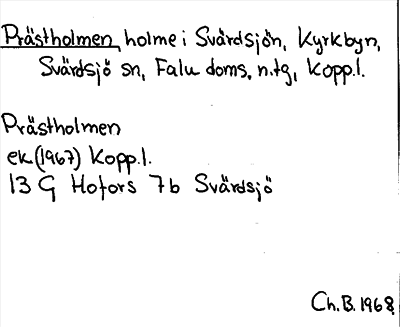 Prästholmen, holme i Svärdsjön, Kyrkbyn,
Svärdsjö sn, Falu doms. n.tg, Kopp.l.
Prästholmen
ek.(1967) Kopp.l.
13 G Hofors 7b Svärdsjö
Ch.B. 1968.